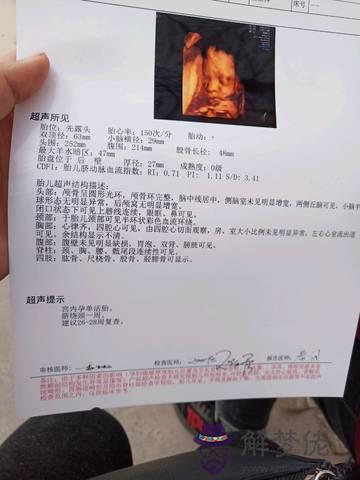 床号
超声所见
胎位：先露头 胎心率：150次/分 胎动：+
双顶径：63mm 小脑横径：29mm
头围：252mm 腹围：214mm 股骨长径：48mm
最大羊水暗区：47mm
胎盘位于 后 壁 厚径：27mm 成熟度：0级
CDFI：胎儿脐动脉血流指数：RI：0.71 PI：1.11 S/D：3.41
胎儿超声结构描述：
头部：颅骨呈圆形光环，颅骨环完整，脑中线居中，侧脑室未见明显增宽，丘脑可见，小脑半
球形态无明显异常，后颅窝无明显增宽。
闭口状态下可见上唇线连续，眼眶、鼻可见。
颈部：于胎儿颈部可见半环状彩色血流环绕。
胸部：心律齐，四腔心可见，由四腔心切面观察，房、室大小比例未见明显异常，左右心室流出道
可见，余结构显示不清。
腹部：腹壁未见明显缺损，胃泡、双肾、膀胱可见。
脊柱：颈、胸、腰、骶尾段连续性可见。
四肢：肱骨、尺桡骨、股骨、胫腓骨可显示。
超声提示
宫内孕单活胎。
脐绕颈一周。
建议26-28周复查。
审核医师： 检查医师： 报告医师：
解梦佬